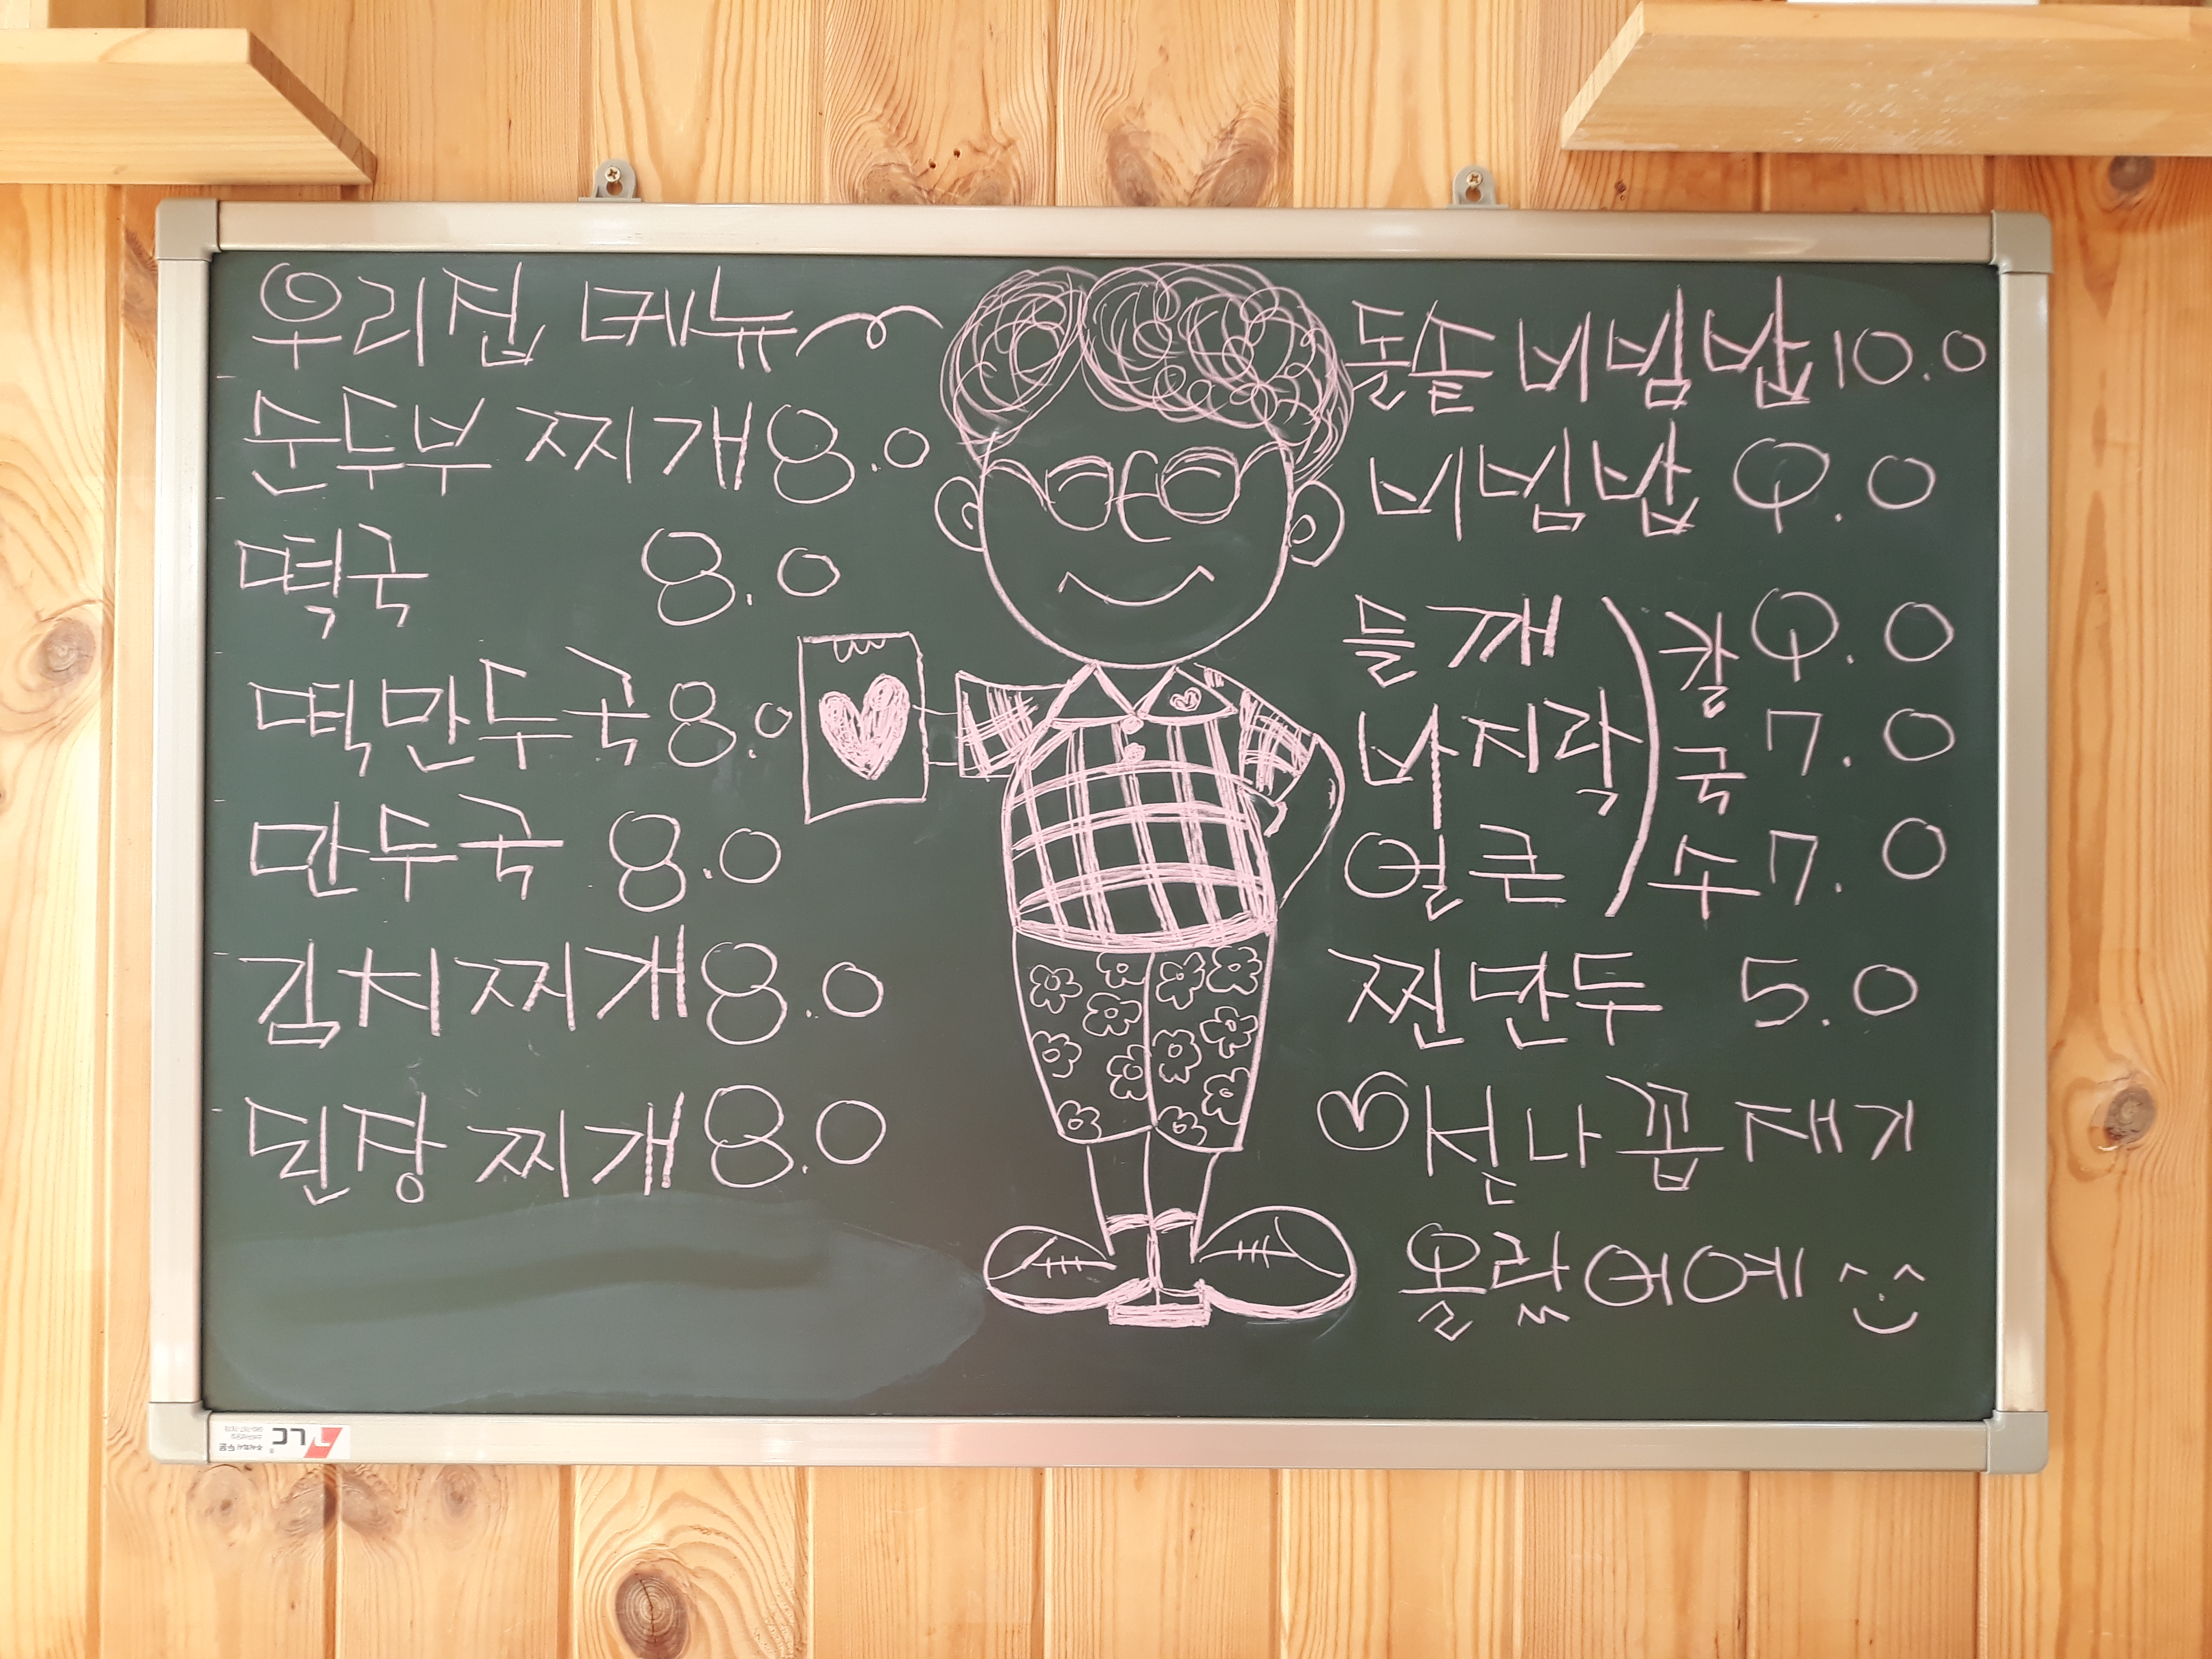 우리집 메뉴
순두부 찌개 8.0
떡국 8.0
떡만두국 8.0
만두국 8.0
김치찌개 8.0
된장 찌개 8.0
돌솥 비빔밥 10.0
비빔밥 9.0
들깨 ) 칼 9.0
바지락 ) 국 7.0
얼큰 ) 수 7.0
찐만두 5.0
♡선나꼽재기
올랐어예